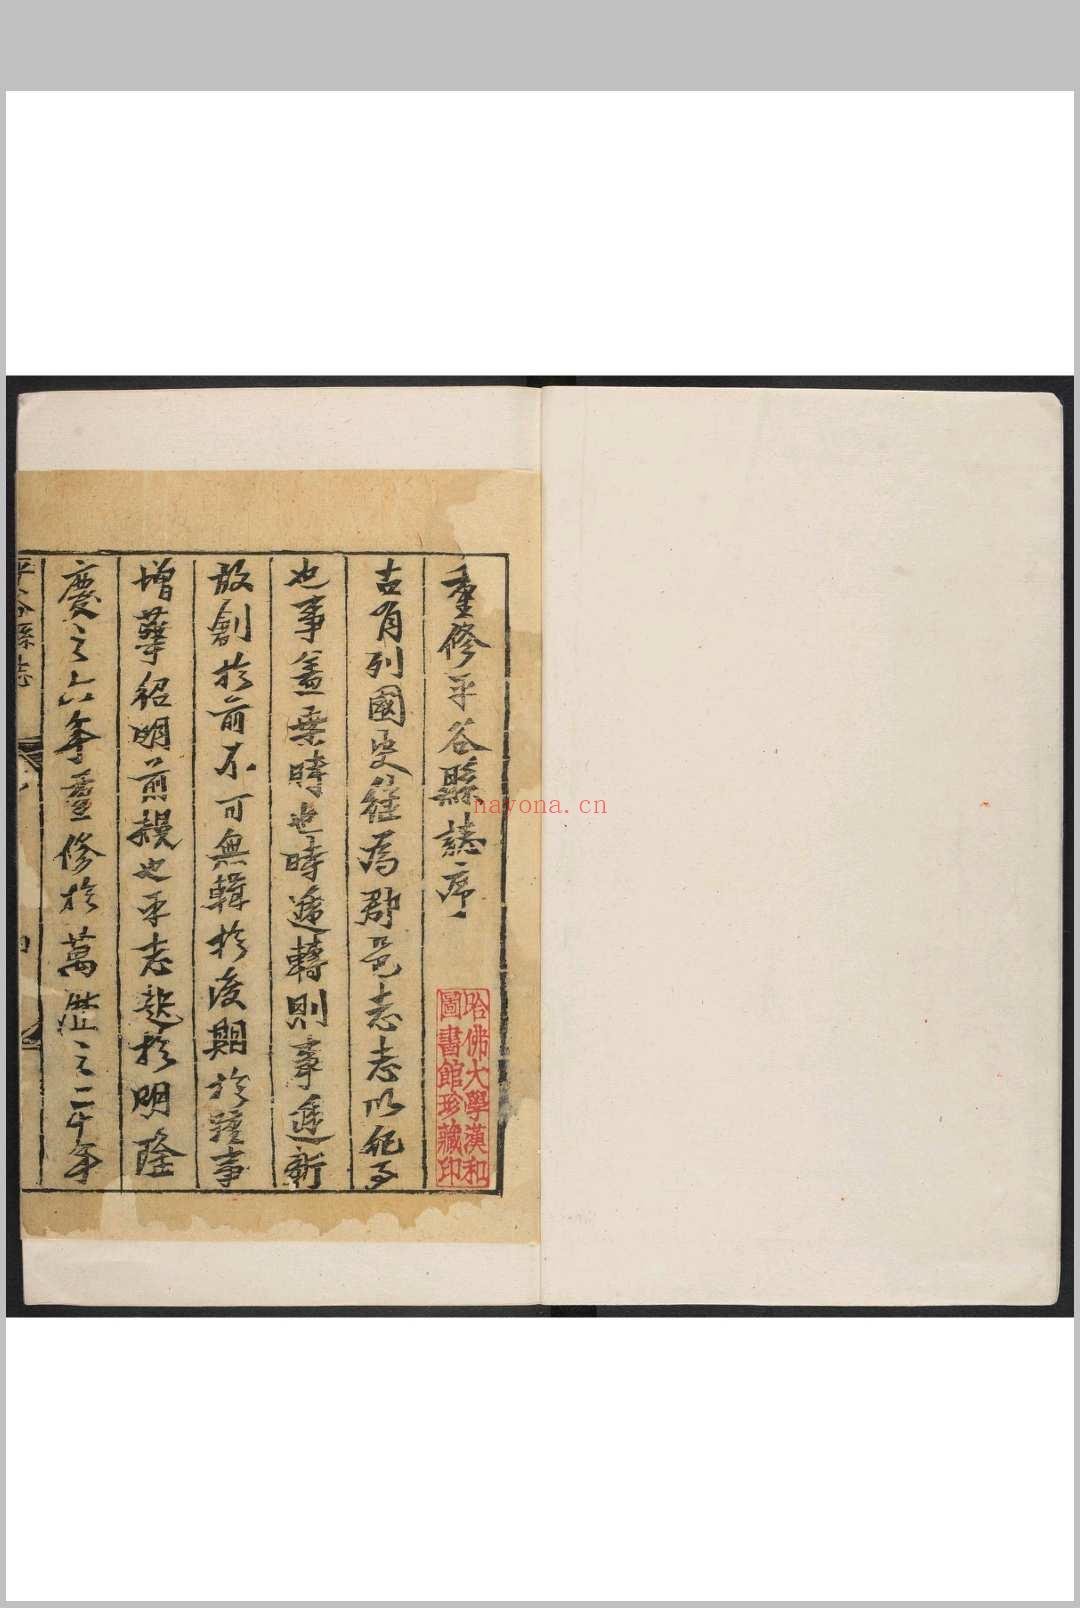 重修平谷縣誌序
古有列國史後為郡邑志志以紀事
也事蓋乘時也時遞轉則事遞新
故創於前不可無輯於後期於踵事
增華紹明前
也平志起於明隆
慶之六年重修於萬曆之二十年
平谷縣志
哈佛大學漢和
圖書館珍藏印
nayona.cn